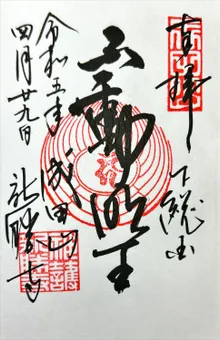 奉拝
下総国
不動明王
成田山
新勝寺
令和五年
四月廿九日